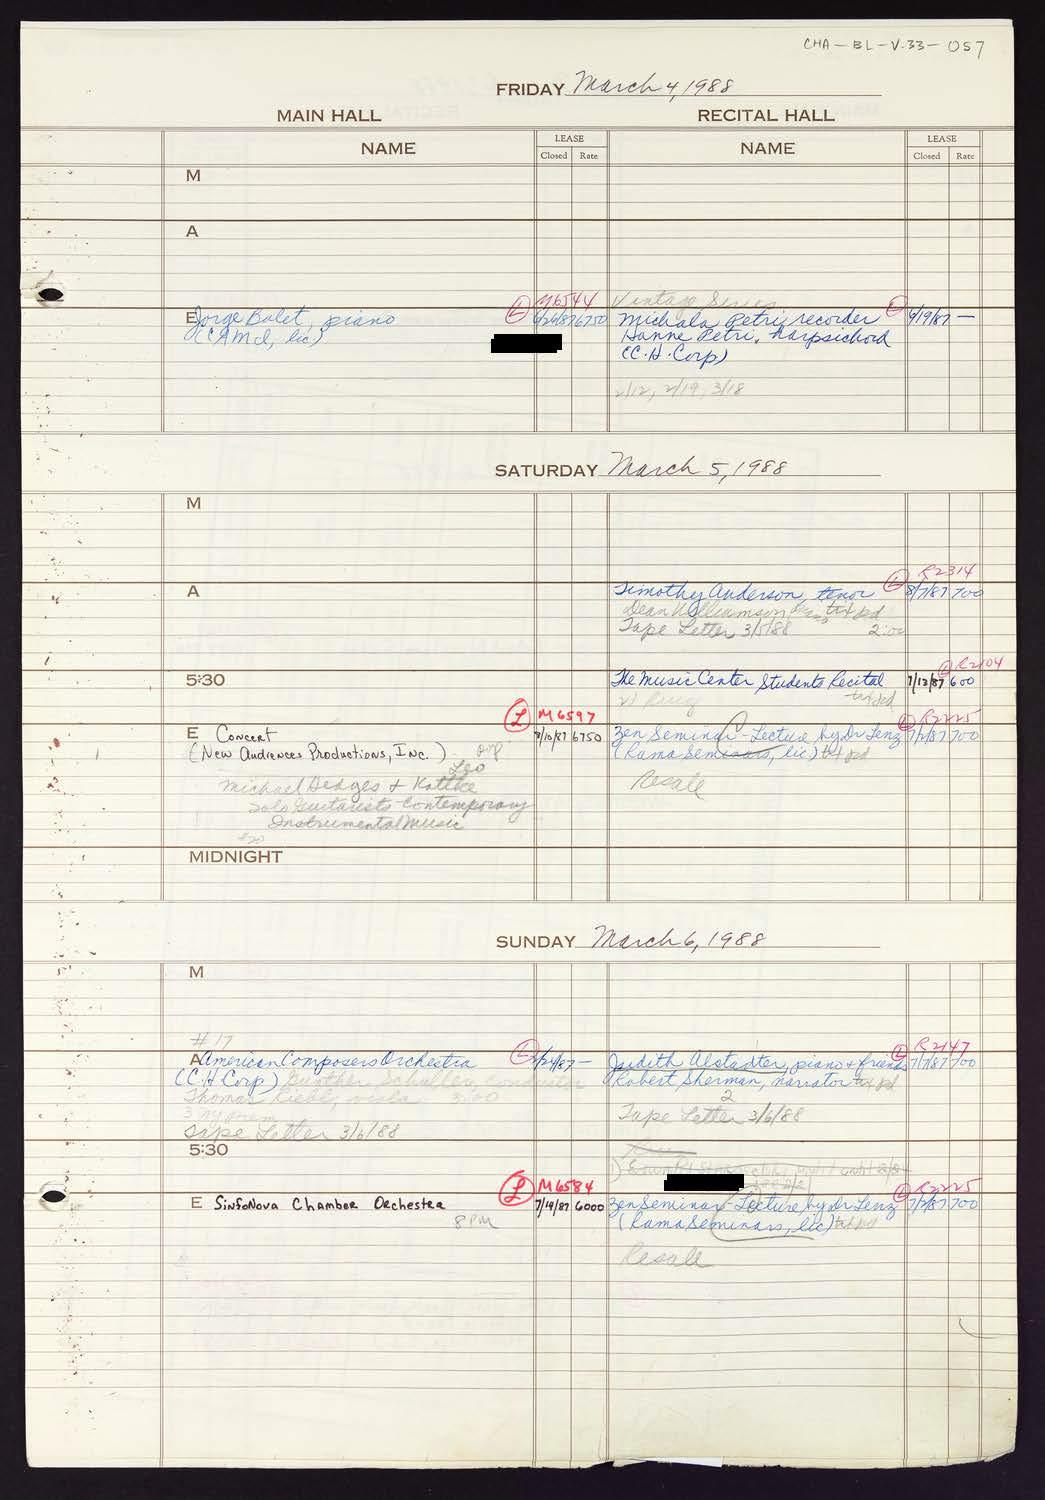 CHA-BL-V.33-057
FRIDAY March 4, 1988
MAIN HALL RECITAL HALL
NAME LEASE Closed Rate NAME LEASE Closed Rate
M
A
L M6544 Vintage Series L
E Jorge Bolet, piano 6/26/87 6750 Michala Petri, recorder 6/19/87 —
(CAMI, lic) Hanne Petri, harpsichord
(C.H. Corp)
2/12, 2/19, 3/18
SATURDAY March 5, 1988
M
L R2314
A Timothy Anderson, tenor 8/7/87 700
Dean Williamson tkt pd
Tape Letter 3/5/88 2:00
L R2104
5:30 The Music Center Students Recital 7/13/87 600
L M6597 L R2225
E Concert 8/10/87 6750 Zen Seminar - Lecture by Dr Lenz 7/2/87 700
(New Audiences Productions, Inc.) (Rama Seminars, lic) tkt pd
Leo Resale
Michael Hedges & Kottke
Solo Guitarists Contemporary
Instrumental Music
MIDNIGHT
SUNDAY March 6, 1988
M
#17 L R2147
A American Composers Orchestra L 4/24/87 — Judith Alstadter, piano + friends 7/7/87 700
(C.H. Corp) Gunther Schuller, conductor Robert Sherman, narrator tkt pd
Thomas Riebl, viola 3:00 2
3 NY prem Tape Letter 3/6/88
Tape Letter 3/6/88
5:30
L M6584 L R2225
E SinfoNova Chamber Orchestra 7/14/87 6000 Zen Seminar - Lecture by Dr Lenz 7/7/87 700
8 PM (Rama Seminars, lic) tkt pd
Resale